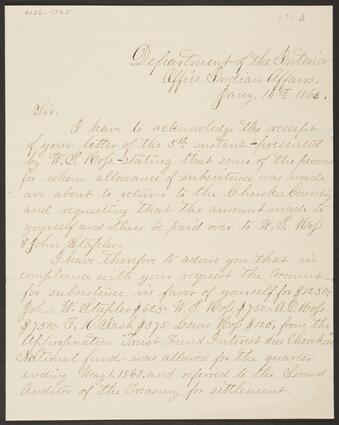 4026.1365
A
Department of the Interior
Office Indian Affairs,
Jany, 16th 1865.
Sir.
I have to acknowledge the receipt
of your letter of the 5th instant - presented
by W. P. Ross, - stating that some of the persons
for whom allowance of subsistence was made
are about to return to the Cherokee Country
and requesting that the amount made to
yourself and others be paid over to W. P. Ross
& John, Stapler.
I have therefore to advise you that in
compliance with your request the account
for subsistence in favor of yourself for $1250.-
John W. Stapler $625.- W. P. Ross, $750. A. D. Ross
$750. F. H. Nash $375. Lewis Ross, $125, from the
Appropriation Trust Fund Interest due Cherokee
National fund, was allowed for the quarter
ending May 1. 1863, and referred to the Second
Auditor of the Treasury for settlement.